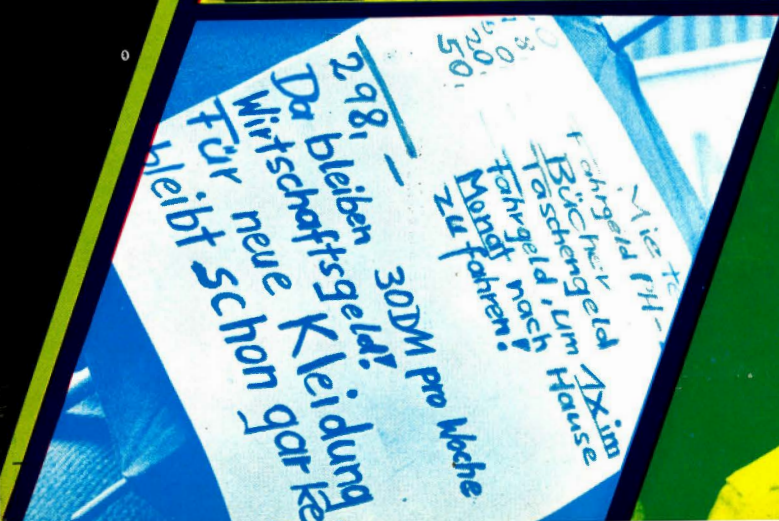 Miete
Fahrgeld PH-
Bücher
20, Taschengeld
50, Fahrgeld, um 1x im
Monat nach Hause
zu fahren!
298,-
Da bleiben 30DM pro Woche
Wirtschaftsgeld!
Für neue Kleidung
bleibt schon gar ke